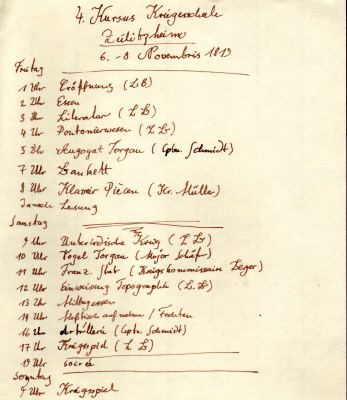 4. Kursus Kriegsschule
Zeilitzheim
6. - 8 Novembris 1813
Freitag
1 Uhr Eröffnung (LB)
2 Uhr Essen
3 Uhr Literatur (L B)
4 Uhr Pontonierwesen (L B)
5 Uhr Torgau (Cptn. Schmidt)
7 Uhr Bankett
8 Uhr Klavier Piecen (Hr. Müller)
Danach Lesung
Samstag
9 Uhr Unterirdische Krieg (L B)
10 Uhr Torgau (Major Schäf)
11 Uhr Franz. Stab (Kriegskommissaire)
12 Uhr Einweisung Topographie (L. B)
13 Uhr Mittagessen
14 Uhr / Fechten
16 Uhr Artillerie (Cptn. Schmidt)
17 Uhr Kriegsspiel (L B)
19 Uhr soirée
Sonntag
9 Uhr Kriegsspiel